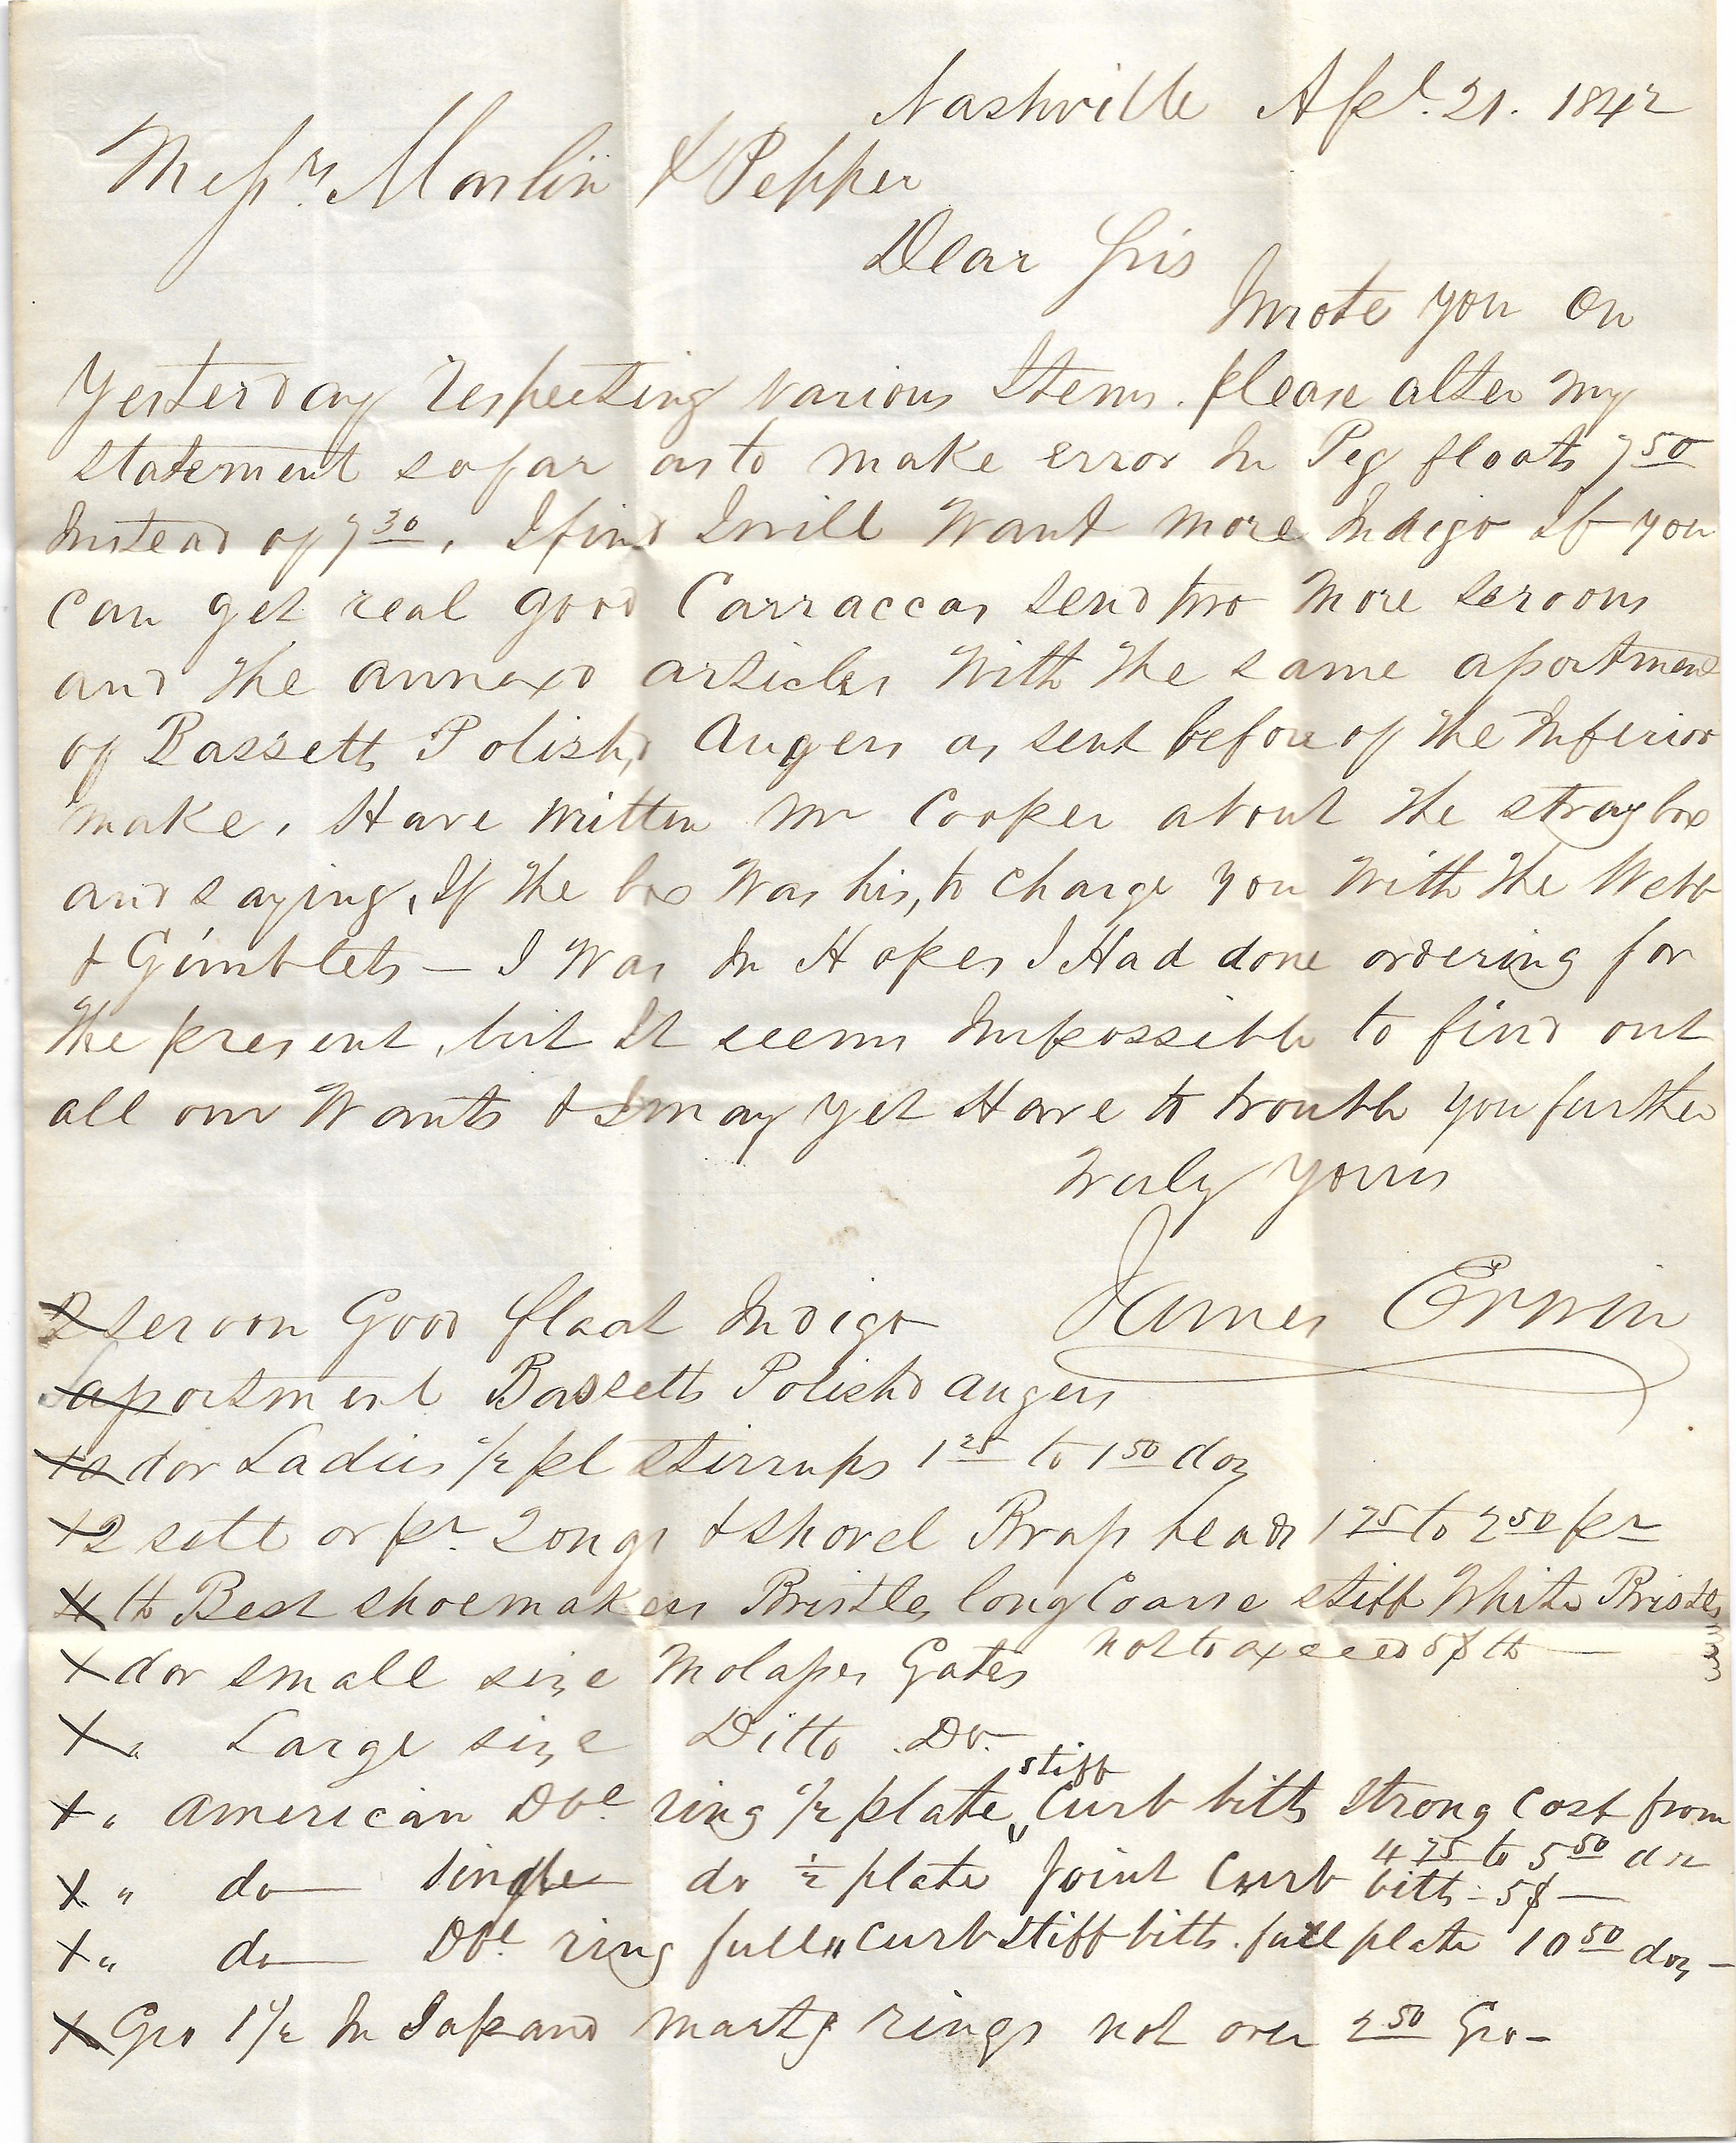 Nashville Apl. 21. 1842
Messrs. Monlin & Pepper
Dear Sirs
I wrote you on
Yesterday respecting various Items. please alter my
statement so far as to make error In Peg floats 7 50
Instead of 7 30, I find I will want more Indigo If you
can get real good Carraccas send two more seroons
and the annexd articles with the same assortment
of Bassetts Polishd Augers as sent before of the Inferior
make, Have written Mr Cooper about the stray box
and saying, If the box was his, to charge you with the Webb
& Gimblets — I was In Hopes I Had done ordering for
the present, but It seems Impossible to find out
all our wants & I may yet Have to trouble you further
Truly yours
James Erwin
2 seroon Good float Indigo
assortment Bassetts Polishd augers
doz Ladies 1/2 pl stirrups 1 25 to 1 50 doz
2 sett or pr. Tongs & shovel Brass heads 1 75 to 2 50 pr
lb Best shoemakers Bristles long Coarse stiff White Bristles
not to exceed 5$ lb —
x doz small size Molasses Gates
x " Large size Ditto Do—
x " American Dbe ring 1/2 plate stiff Curb bitts strong cost from
4 75 to 5 50 dz
x " do — single do 1/2 plate Joint Curb bitts - 5$ —
x " do — Dbl ring full " Curb stiff bitts. full plate 10 50 doz —
x Gro 1 1/2 In Japand martg rings not over 2 50 Gro —